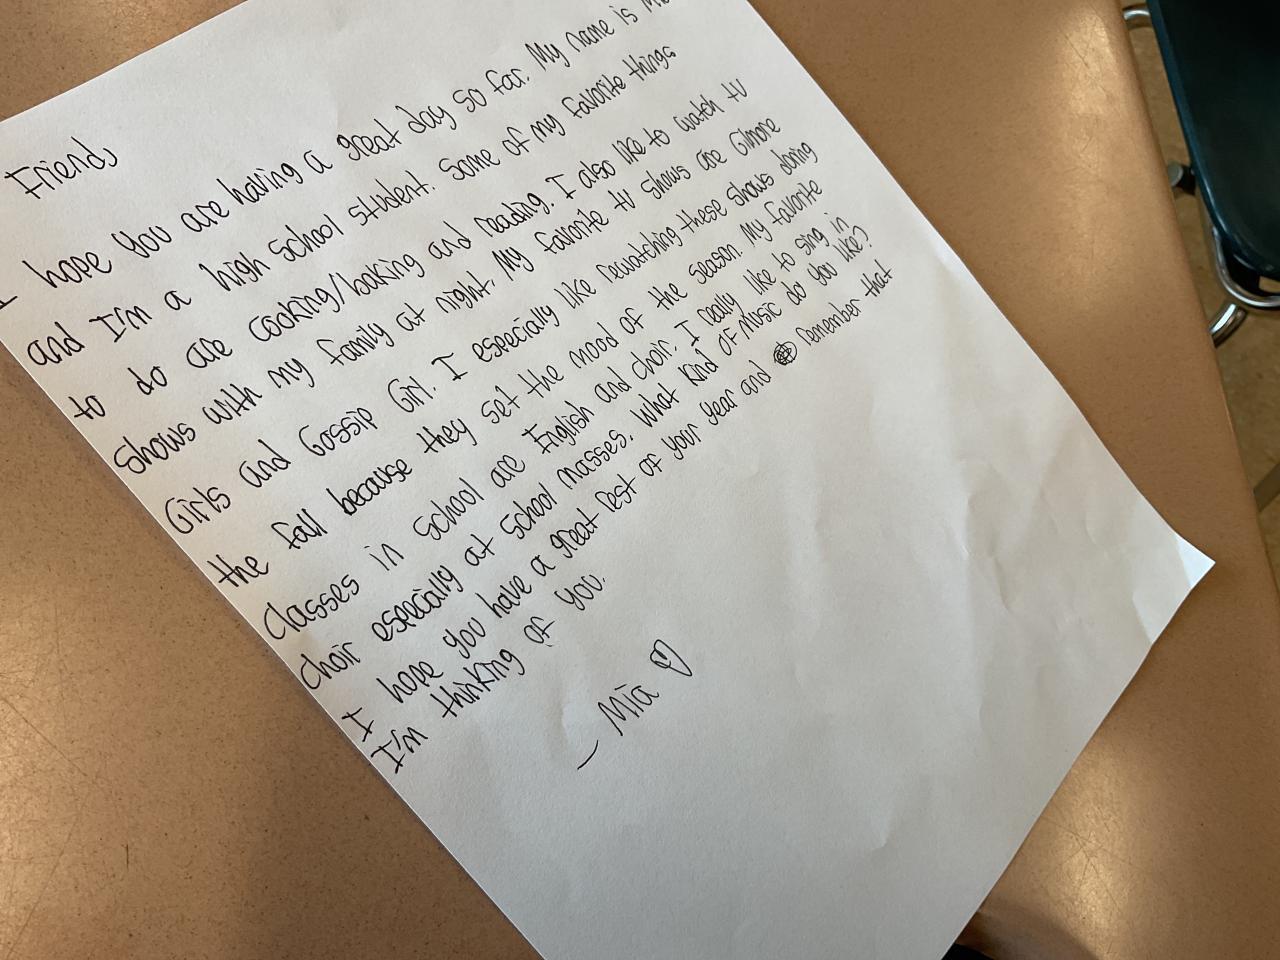 Friend,
I hope you are having a great day so far. My name is
and I'm a high school student. Some of my favorite things
to do are cooking/baking and reading. I also like to watch tv
shows with my family at night. My favorite tv shows are Gilmore
Girls and Gossip Girl. I especially like rewatching these shows during
the fall because they set the mood of the season. My favorite
classes in school are English and choir. I really like to sing in
choir especially at school masses. What kind of music do you like?
I hope you have a great rest of your year and remember that
I'm thinking of you.
— Mia ♡